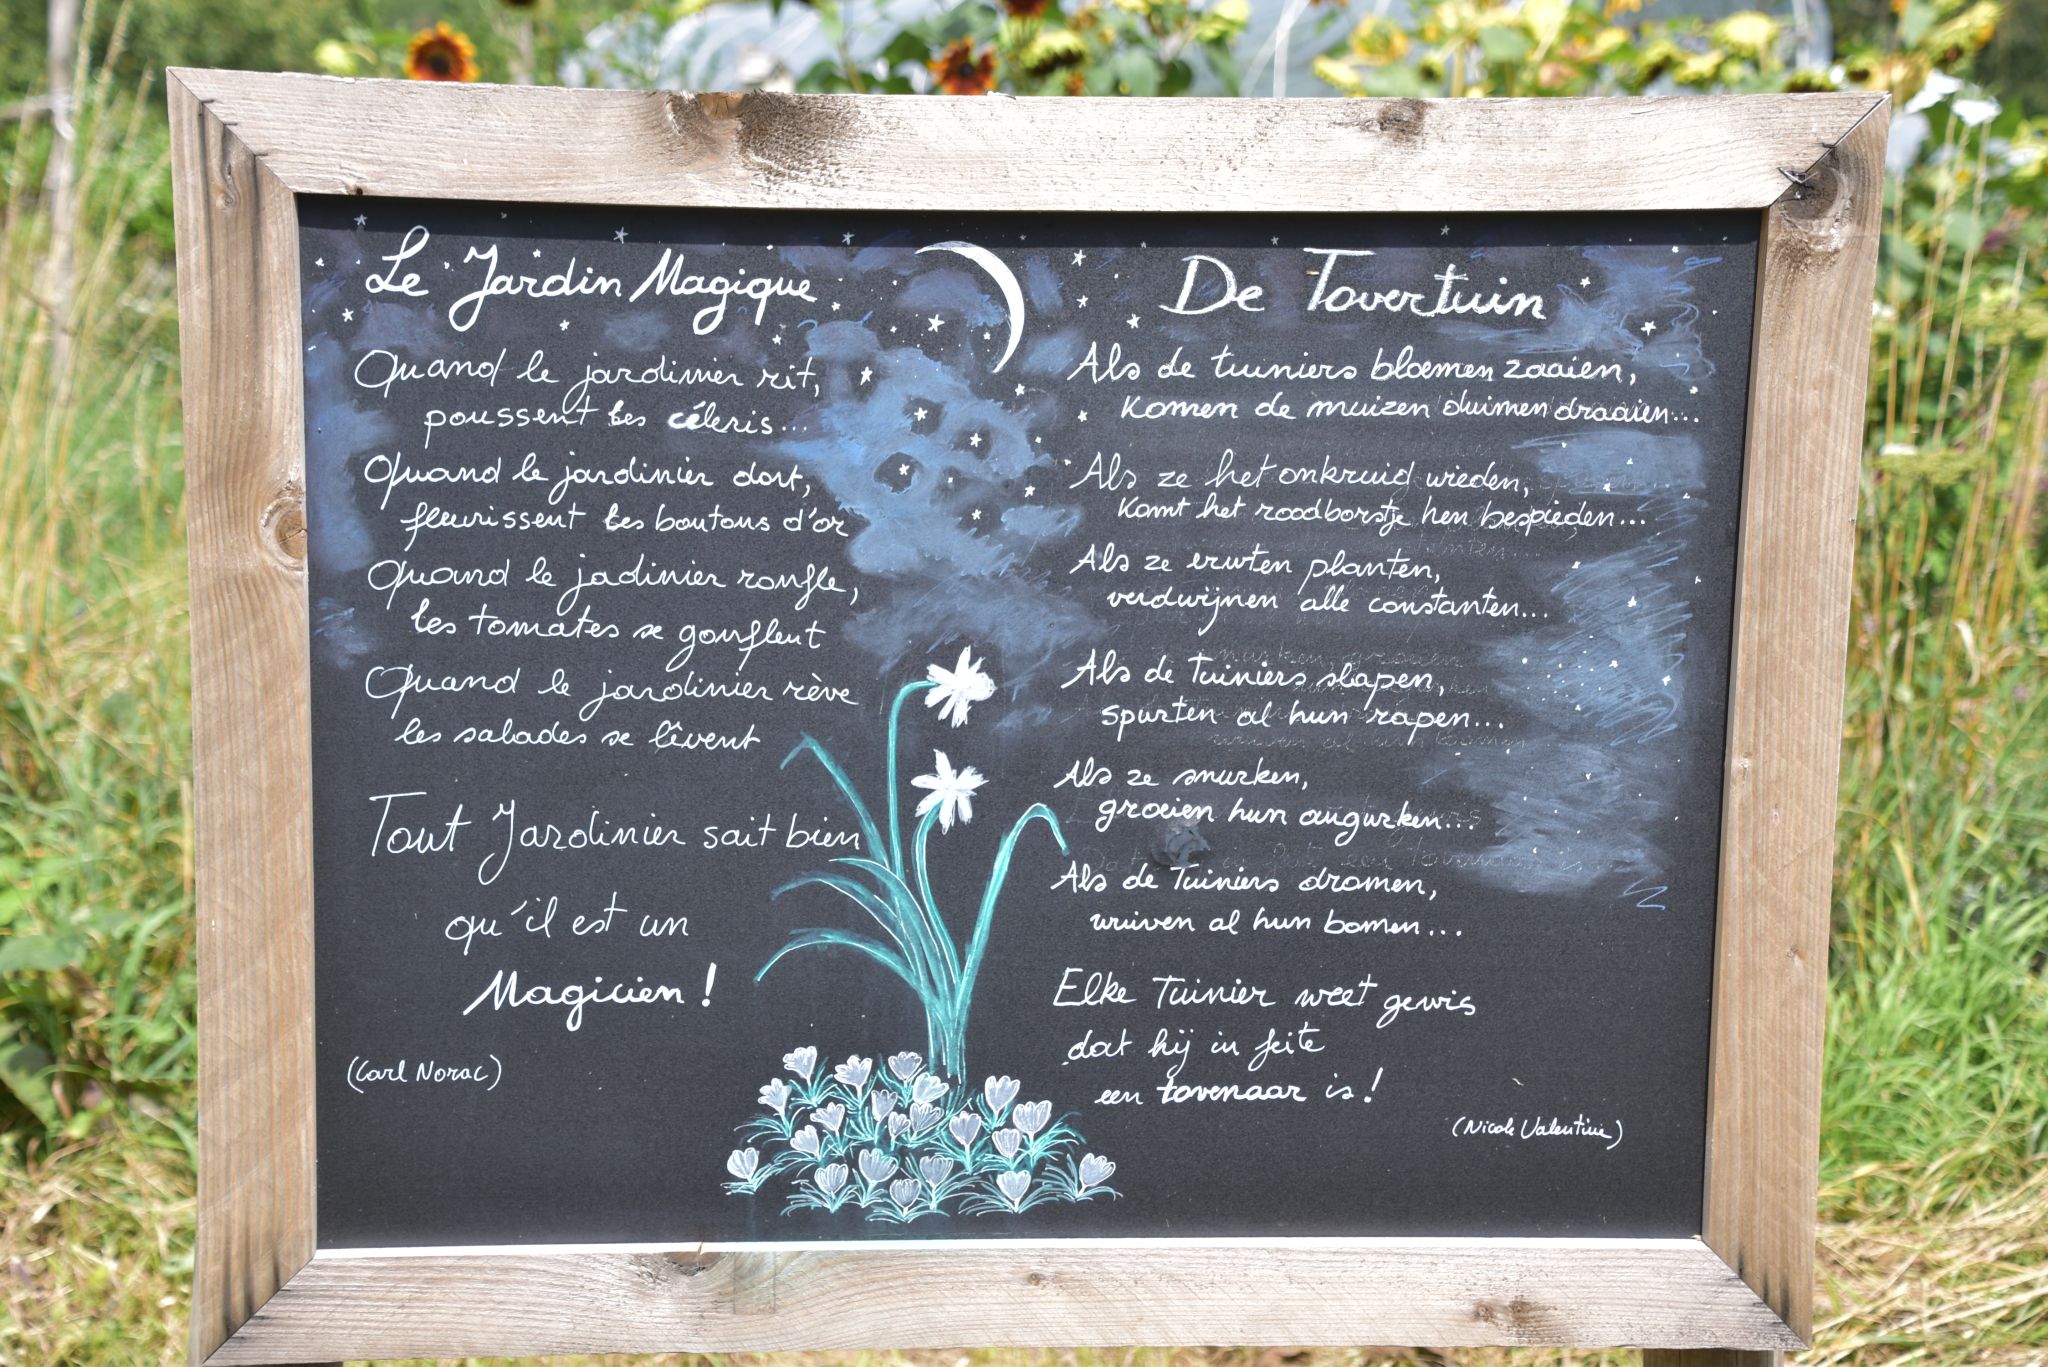 Le Jardin Magique
Quand le jardinier rit,
poussent les céleris...
Quand le jardinier dort,
fleurissent les boutons d'or
Quand le jadinier ronfle,
les tomates se gonflent
Quand le jardinier rève
les salades se lêvent
Tout Jardinier sait bien
qu'il est un
Magicien !
(Carl Norac)
De Tovertuin
Als de tuiniers bloemen zaaien,
komen de muizen duimen draaien...
Als ze het onkruid wieden,
komt het roodborstje hen bespieden...
Als ze erwten planten,
verdwijnen alle constanten...
Als de Tuiniers slapen,
spurten al hun rapen...
Als ze snurken,
groeien hun augurken...
Als de Tuiniers dromen,
wuiven al hun bomen...
Elke Tuinier weet gewis
dat hij in feite
een tovenaar is !
(Nicole Valentine)